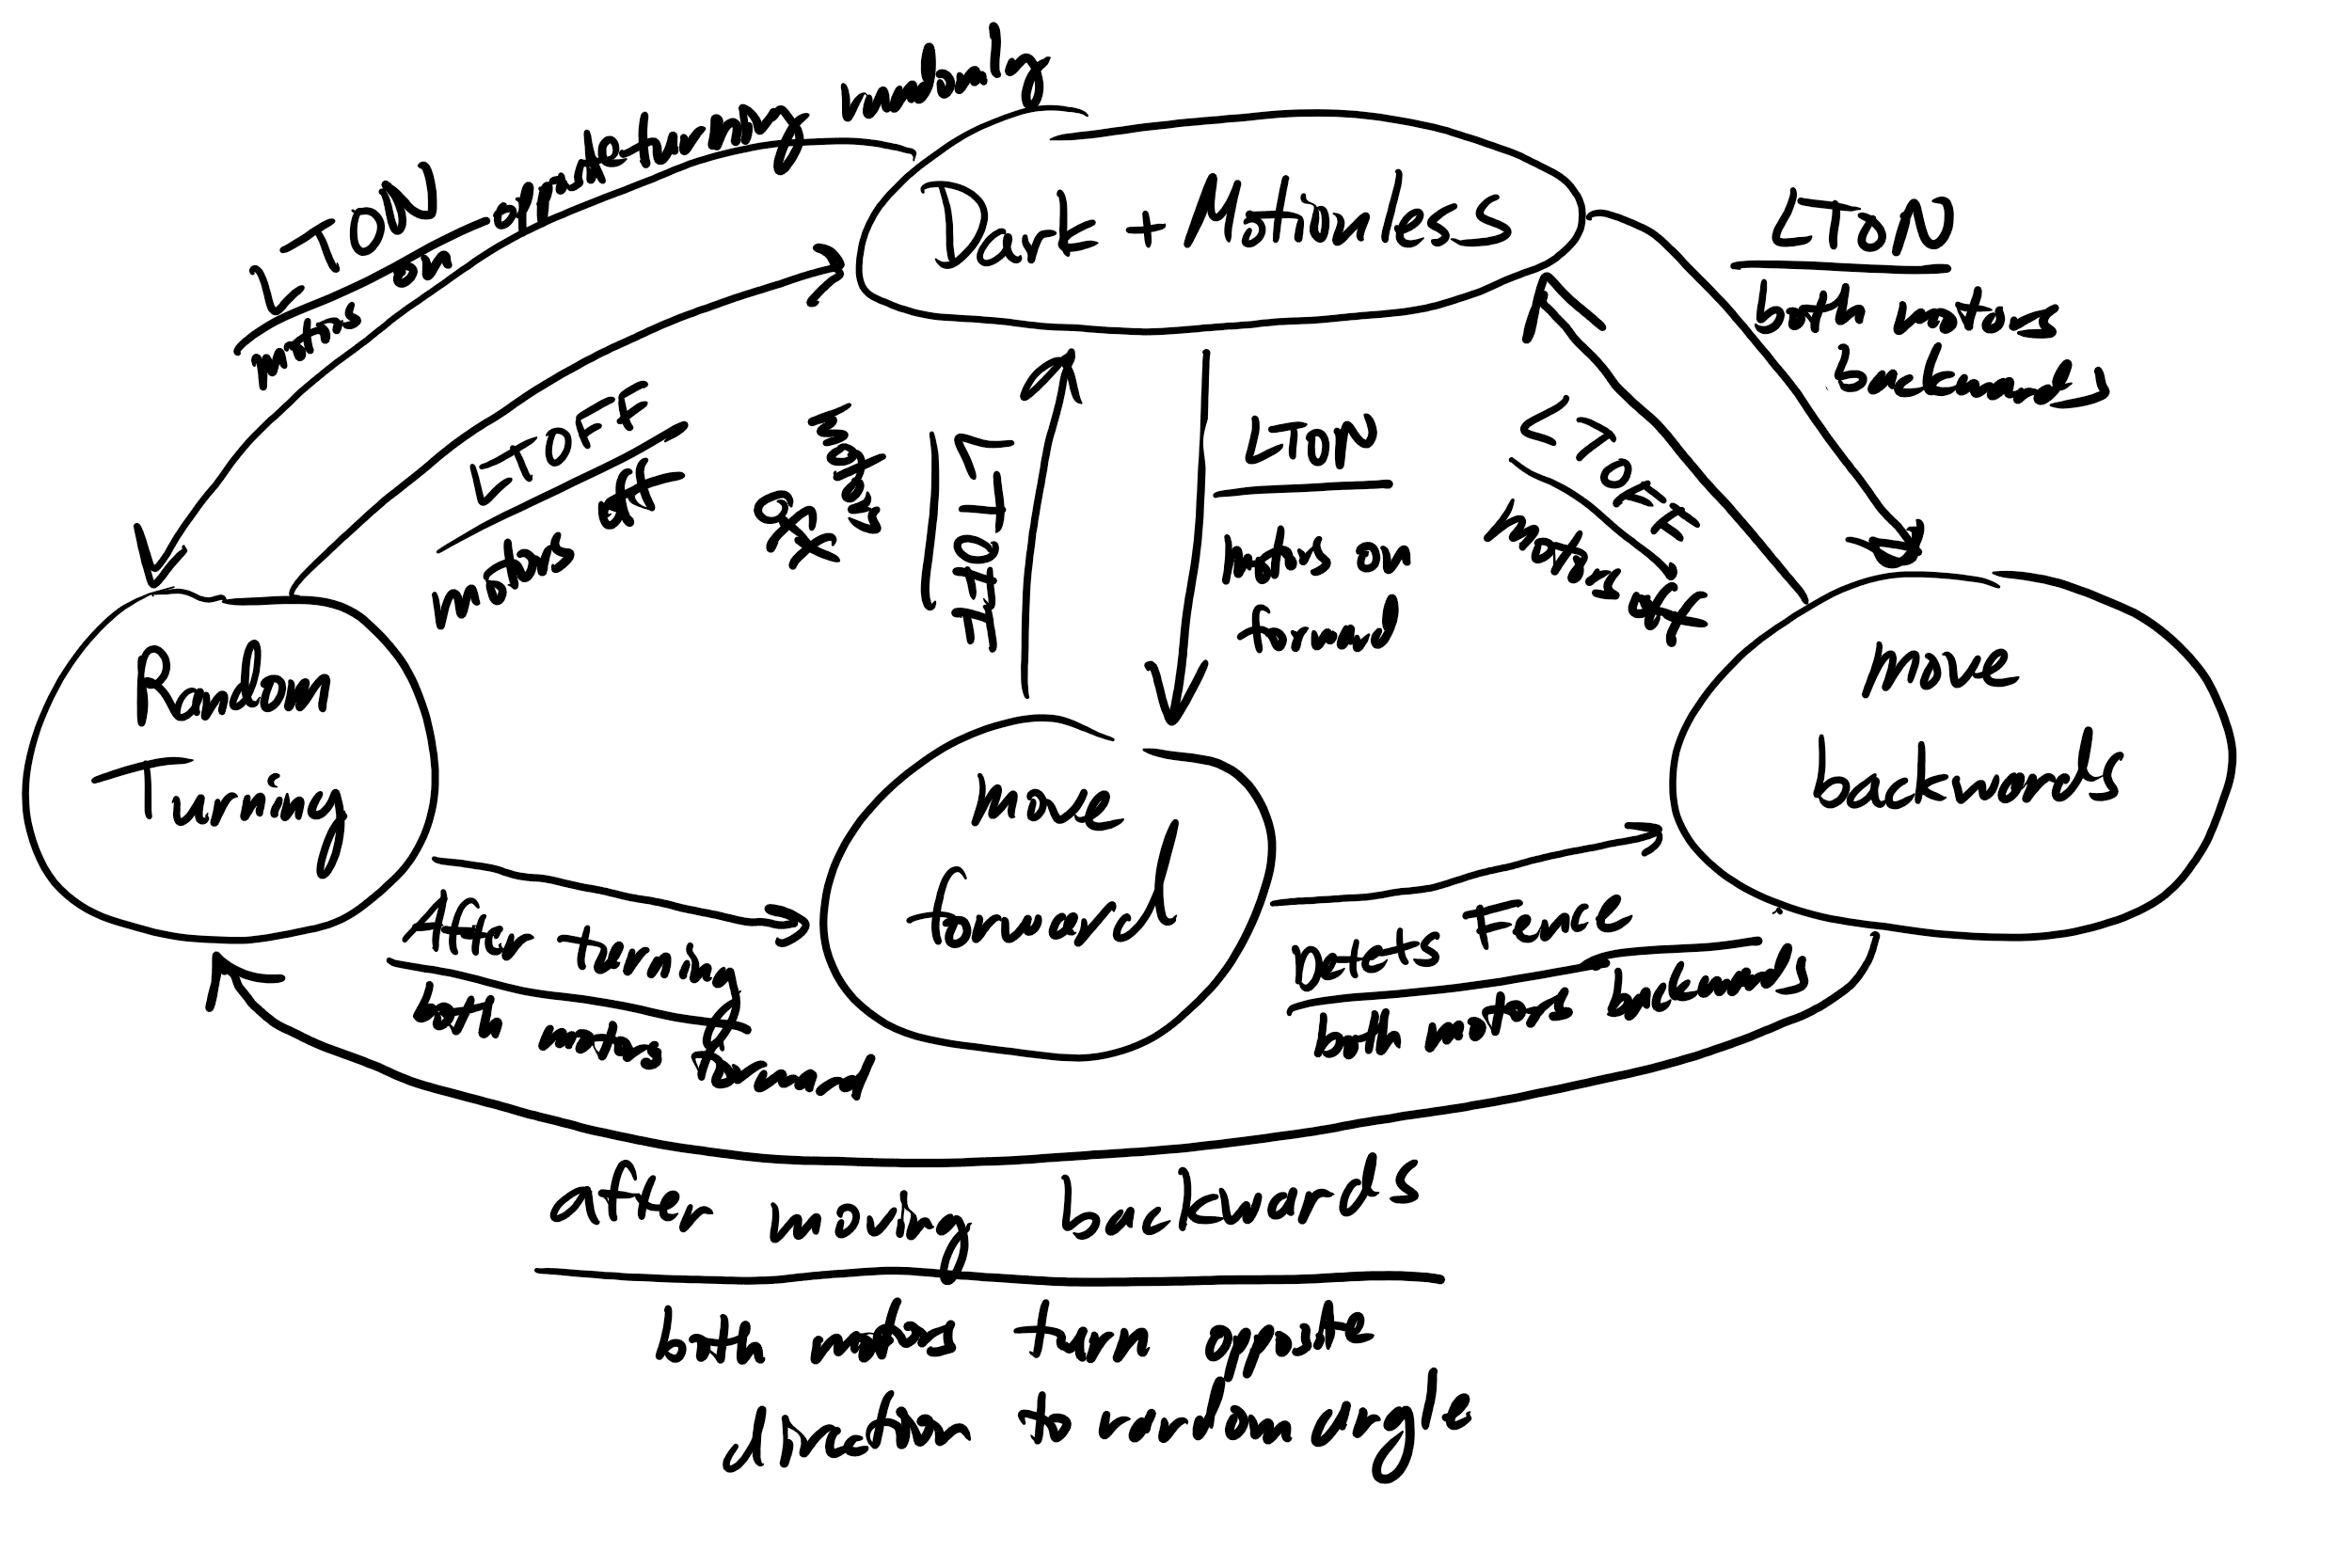 LTON
motors on and turning randomly
Dark + Motionless
LTON
both motors
backwards
LTOFF
motors off
LTOFF
motors
off
LTON
motors on
forward
LTOFF
motors off
Random
Turning
move
forward
move
backwards
After turning
both motors forward
Detects Fence
both motors backwards
after moving backwards
both motors turn opposite
direction to random angle